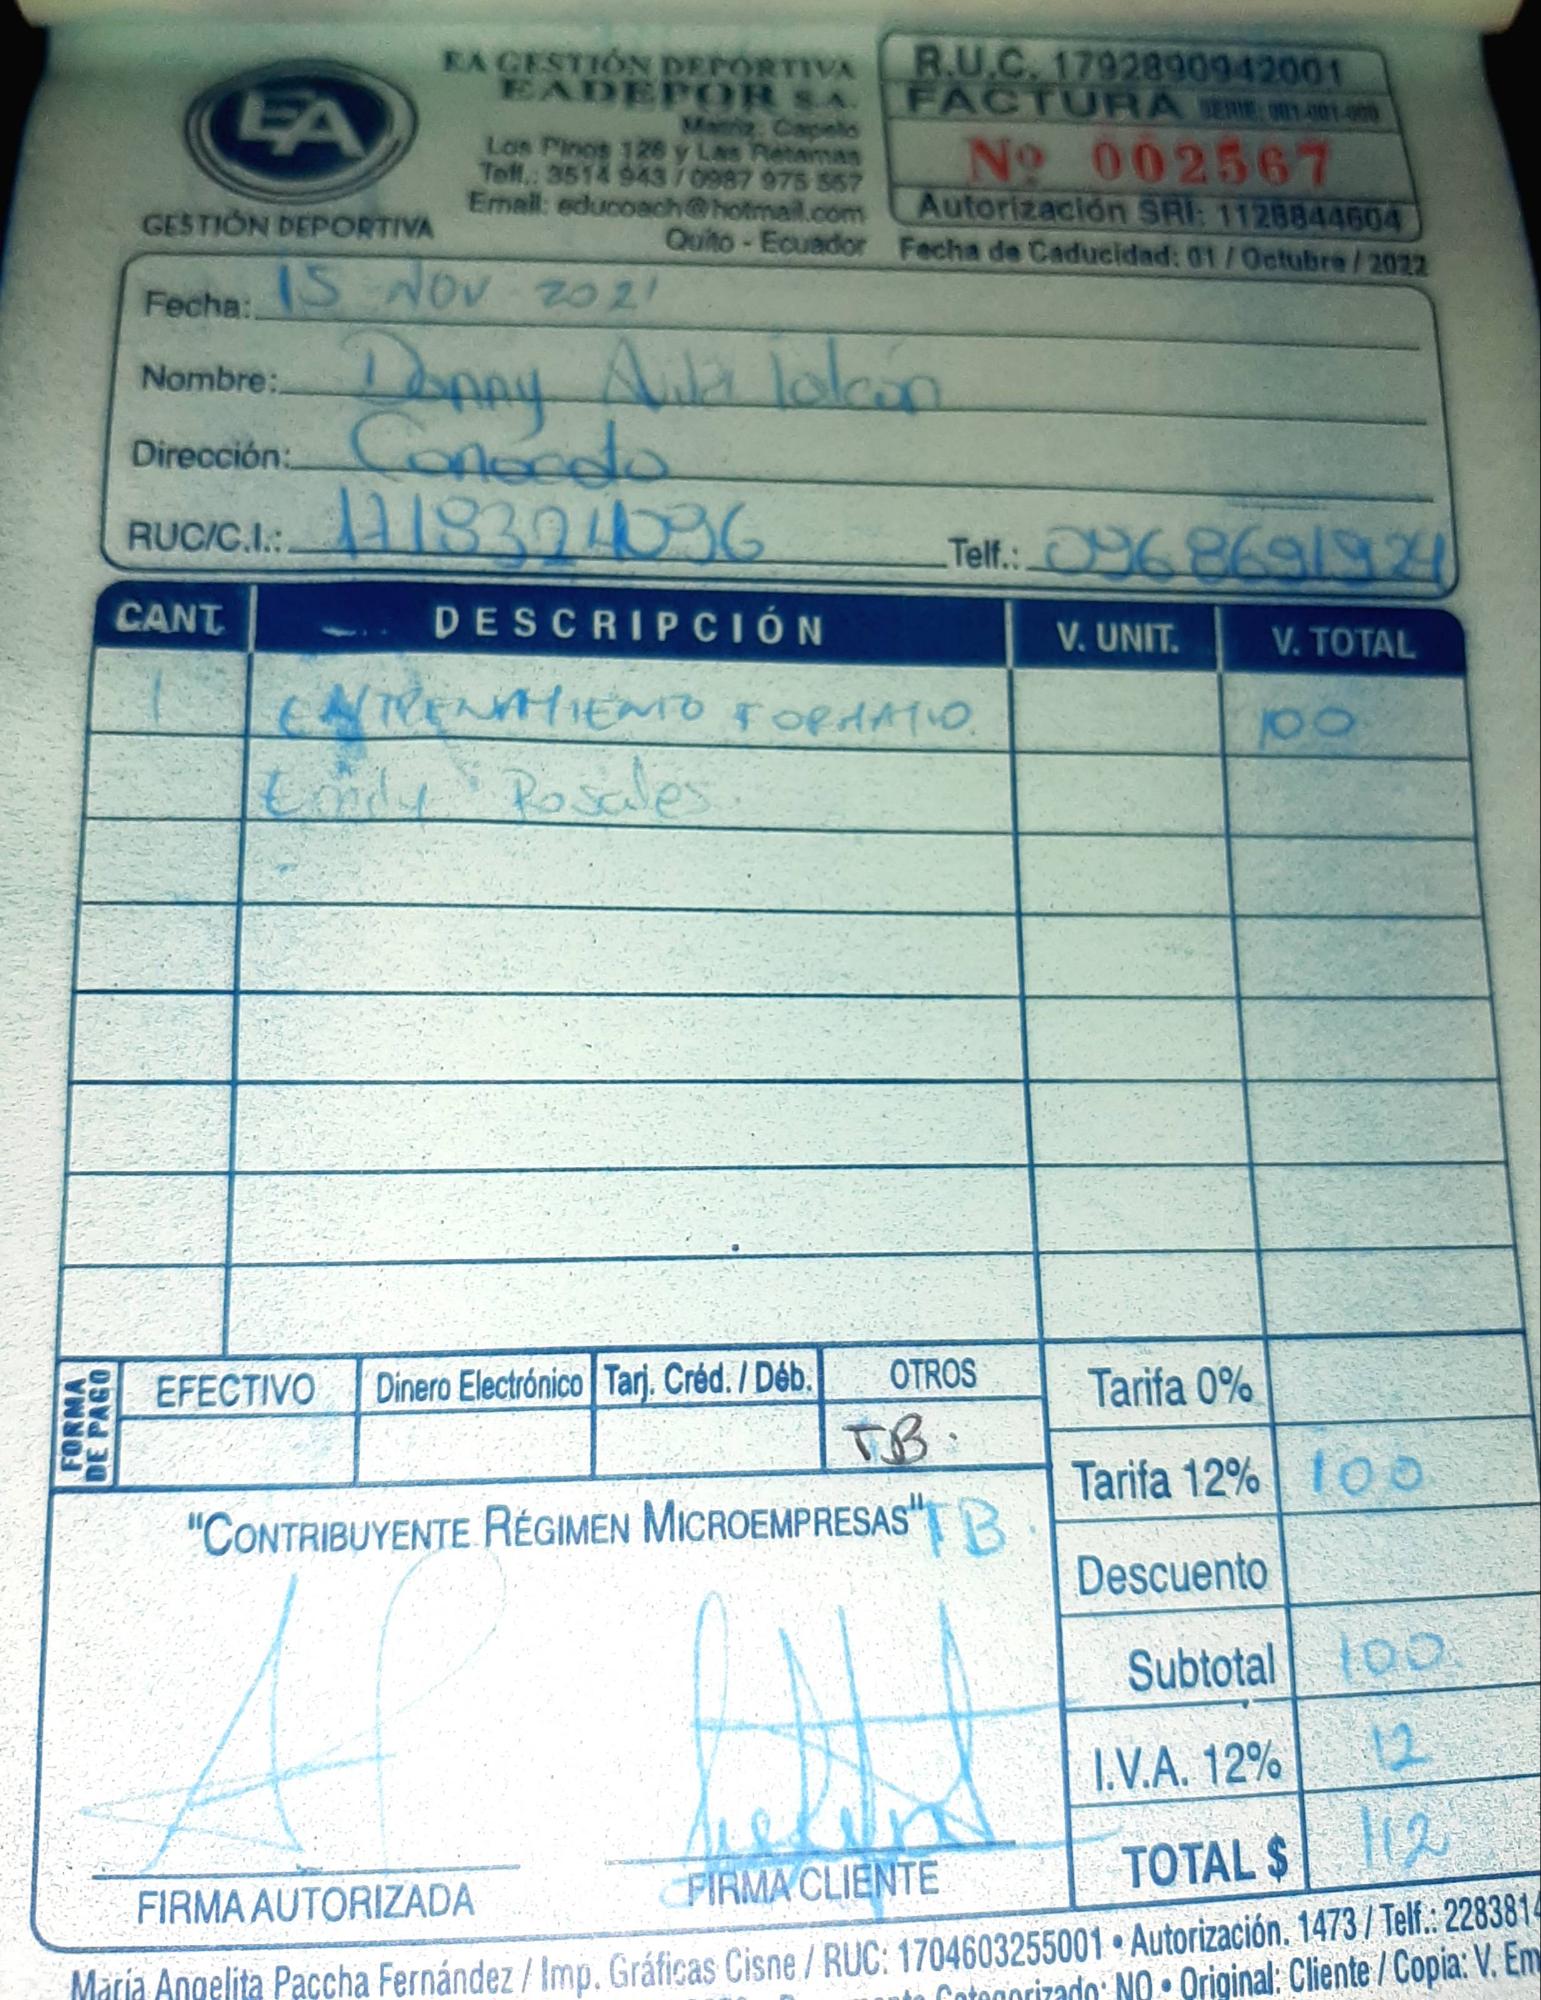 EA
GESTIÓN DEPORTIVA
EA GESTIÓN DEPORTIVA
EADEPOR S.A.
Matriz: Capelo
Los Pinos 126 y Las Retamas
Telf.: 3514 943 / 0987 975 557
Email: educoach@hotmail.com
Quito - Ecuador
R.U.C. 1792890942001
FACTURA SERIE: 001-001-000
Nº 002567
Autorización SRI: 1128844604
Fecha de Caducidad: 01 / Octubre / 2022
Fecha: 15 NOV 2021
Nombre: Danny Avila
Dirección: Conocoto
RUC/C.I.: 1718324096 Telf.: 0968691924
CANT. DESCRIPCIÓN V. UNIT. V. TOTAL
1 ENTRENAMIENTO 100
Rosales
FORMA DE PAGO
EFECTIVO Dinero Electrónico Tarj. Créd. / Déb. OTROS
TB.
"CONTRIBUYENTE RÉGIMEN MICROEMPRESAS" TB.
Tarifa 0%
Tarifa 12% 100
Descuento
Subtotal 100
I.V.A. 12% 12
TOTAL $ 112
FIRMA AUTORIZADA FIRMA CLIENTE
María Angelita Paccha Fernández / Imp. Gráficas Cisne / RUC: 1704603255001 • Autorización. 1473 / Telf.: 2283814
Categorizado: NO • Original: Cliente / Copia: V. Em